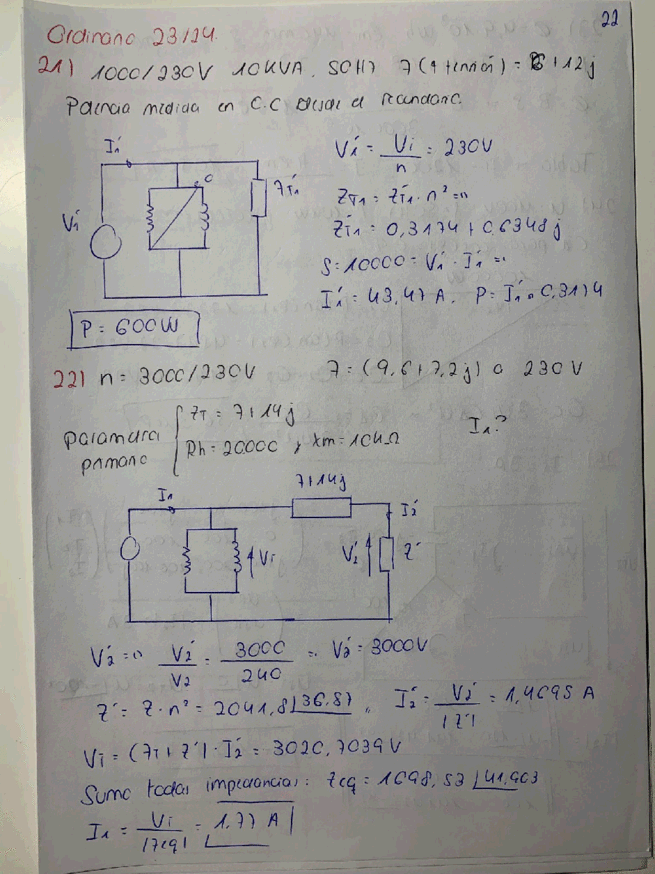 22
Ordinario 23/24.
21) 1000/230V 10KVA. 50Hz Z (1 tensión) = 6 + 12j
Potencia medida en C.C desde el secundario.
I₁' V₁' = V₁/n = 230V
0 Z_T1'
V₁' Z_T1 = Z_T1' · n² =
Z_T1 = 0,3174 + 0,6348j
S = 10000 = V₁' · I₁' =
I₁' = 43,47 A. P = I₁' · 0,3174
P = 600W
22) n = 3000/230V Z = (9,6 + 7,2j) a 230V
Z_T = 7 + 14j
Parametros primario I₁?
Rh = 20000, Xm = 10kΩ
7+14j
I₁ I₂'
Vi V₂' Z'
V₂' = V₂'/V₂ = 3000/240 V₂' = 3000V
Z' = Z · n² = 2041,8∠36,87, I₂' = V₂'/|Z'| = 1,4695 A
Vi = (Z_T + Z') · I₂' = 3020,7039V
Sumo todas impedancias: Zeq = 1698,53∠41,903
I₁ = Vi/|Zeq| = 1,77 A